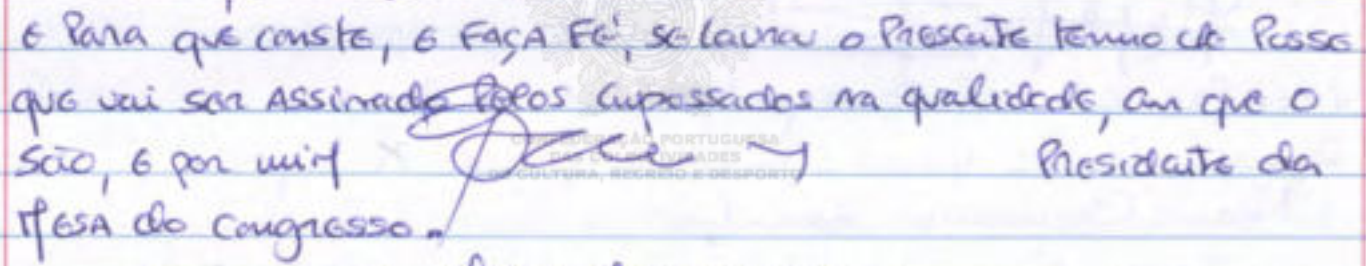 E Para que conste, e FAÇA Fé, se lavrou o Presente termo de Posse
que vai ser Assinado Pelos Empossados na qualidade, em que o
São, e por mim Presidente da
MESA do Congresso.
CONFEDERAÇÃO PORTUGUESA
DAS COLECTIVIDADES
DE CULTURA, RECREIO E DESPORTO